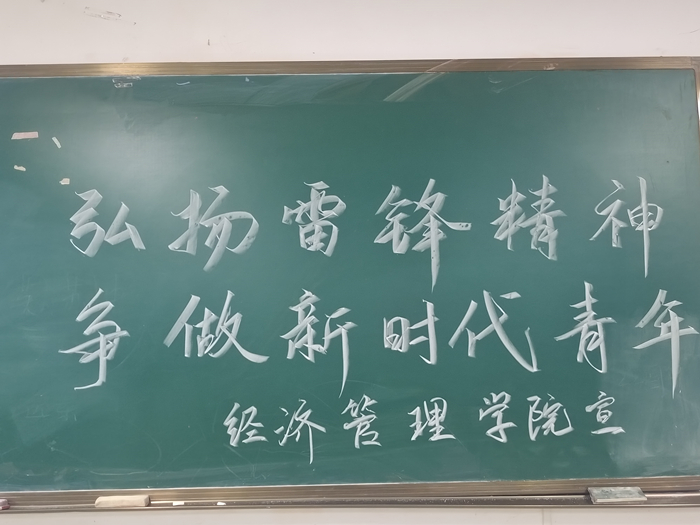 弘扬雷锋精神
争做新时代青年
经济管理学院宣